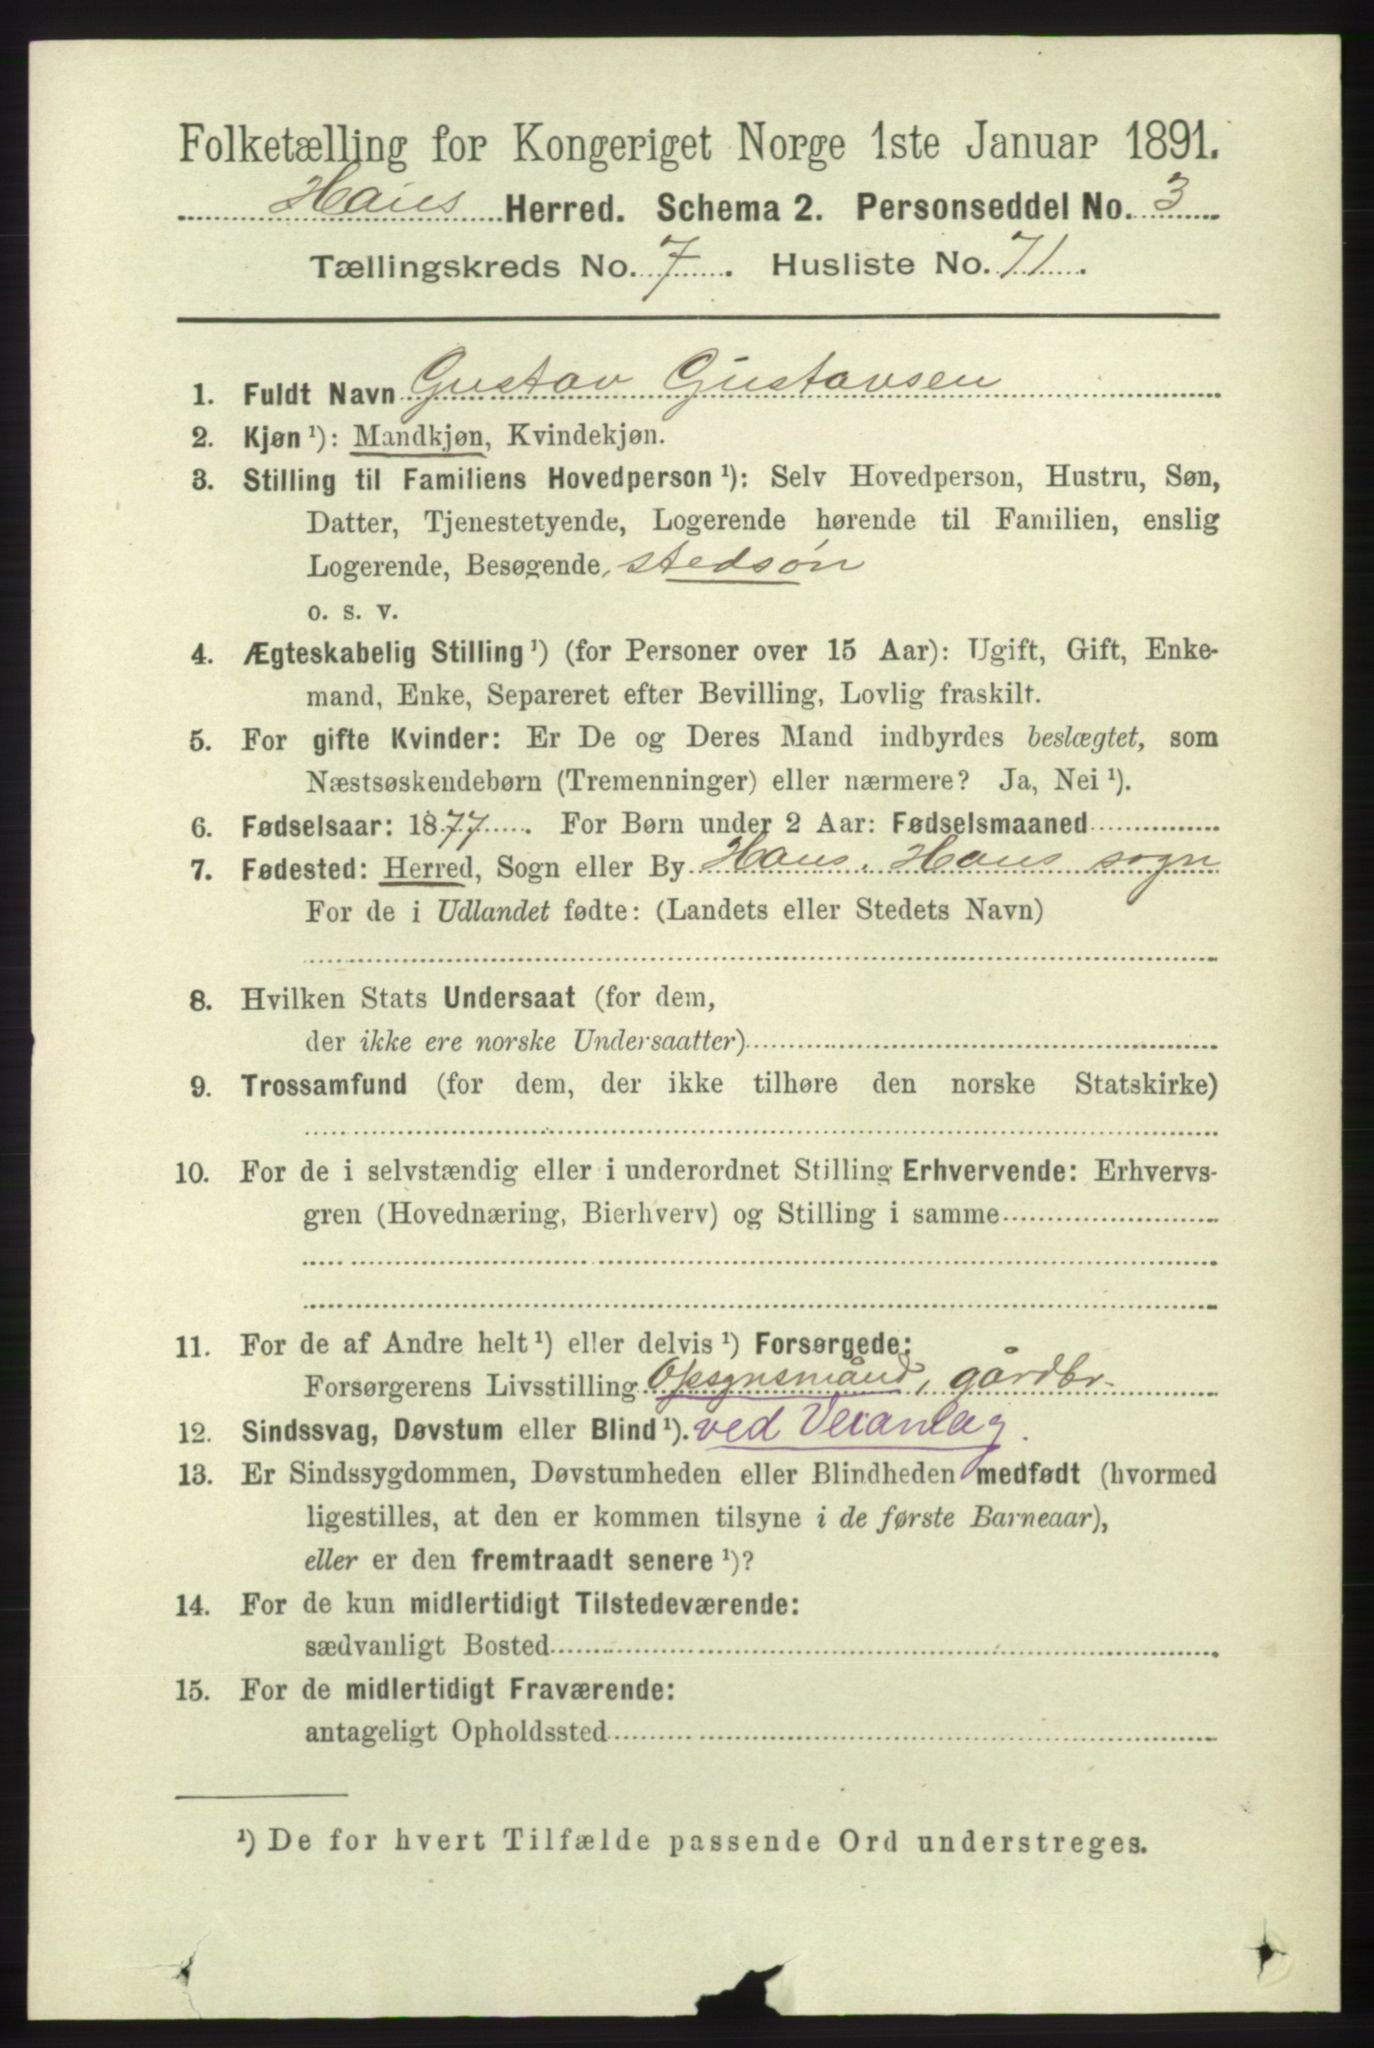 Folketælling for Kongeriget Norge 1ste Januar 1891.
Haus Herred. Schema 2. Personseddel No. 3
Tællingskreds No. 7. Husliste No. 71.
1. Fuldt Navn Gustav Gustavsen
2. Kjøn ¹): Mandkjøn, Kvindekjøn.
3. Stilling til Familiens Hovedperson ¹): Selv Hovedperson, Hustru, Søn,
Datter, Tjenestetyende, Logerende hørende til Familien, enslig
Logerende, Besøgende, stedsøn
o. s. v.
4. Ægteskabelig Stilling ¹) (for Personer over 15 Aar): Ugift, Gift, Enke-
mand, Enke, Separeret efter Bevilling, Lovlig fraskilt.
5. For gifte Kvinder: Er De og Deres Mand indbyrdes beslægtet, som
Næstsøskendebørn (Tremenninger) eller nærmere? Ja, Nei ¹).
6. Fødselsaar: 1877. For Børn under 2 Aar: Fødselsmaaned
7. Fødested: Herred, Sogn eller By Haus, Haus sogn
For de i Udlandet fødte: (Landets eller Stedets Navn)
8. Hvilken Stats Undersaat (for dem,
der ikke ere norske Undersaatter)
9. Trossamfund (for dem, der ikke tilhøre den norske Statskirke)
10. For de i selvstændig eller i underordnet Stilling Erhvervende: Erhvervs-
gren (Hovednæring, Bierhverv) og Stilling i samme
11. For de af Andre helt ¹) eller delvis ¹) Forsørgede:
Forsørgerens Livsstilling Opsynsmand, gårdbr.
12. Sindssvag, Døvstum eller Blind ¹). ved Veianlæg.
13. Er Sindssygdommen, Døvstumheden eller Blindheden medfødt (hvormed
ligestilles, at den er kommen tilsyne i de første Barneaar),
eller er den fremtraadt senere ¹)?
14. For de kun midlertidigt Tilstedeværende:
sædvanligt Bosted
15. For de midlertidigt Fraværende:
antageligt Opholdssted
¹) De for hvert Tilfælde passende Ord understreges.